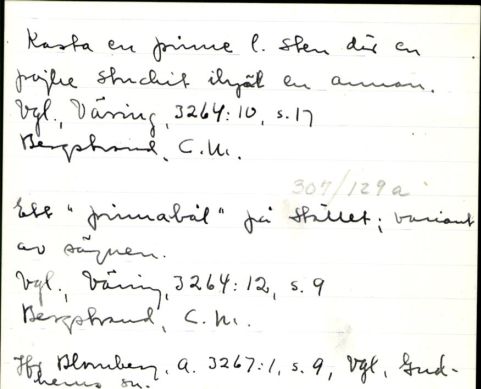 Kasta en pinne l. sten där en
pojke stuckit ihjäl en annan.
Vgl., Väring, 3264:10, s.17
Bergstrand, C.M.
307/129a
Ett "pinnabål" på stället; variant
av sägnen.
Vgl., Väring, 3264:12, s. 9
Bergstrand, C.M.
Jfr Blomberg, A. 3267:1, s. 9, Vgl, Gud-
hems sn.